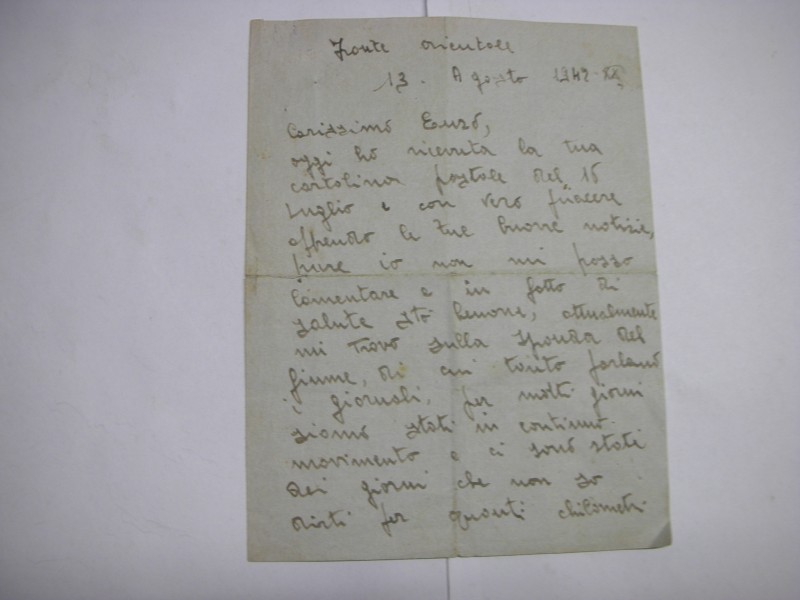 Fronte orientale
13. Agosto 1942-XX,
Carissimo Enzo,
oggi ho ricevuta la tua
cartolina postale del 15
Luglio e con vero piacere
apprendo le tue buone notizie,
pure io non mi posso
lamentare e in fatto di
salute stò benone, attualmente
mi trovo sulla sponda del
fiume, di cui tanto parlano
i giornali, per molti giorni
siamo stati in continuo
movimento e ci sono stati
dei giorni che non so
dirti per quanti chilometri